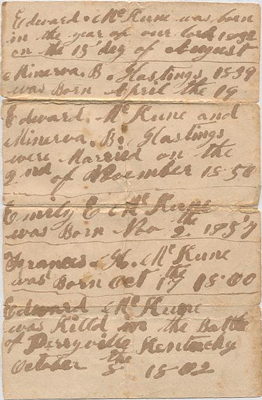 Edward McKune was born
in the year of our lord 1832
on the 15 day of August
Minerva. B. Hastings 1839
was Born April the 19
Edward. McKune and
Minerva. B. Hastings
were Married on the
2nd of November 1856
Emely E McKune
was Born Nov the 2. 1857
Francis H. McKune
was Born Oct 17 the 1860
Edward McKune
was Killd in the Battle
of Perryville Kentucky
October the 8 1862